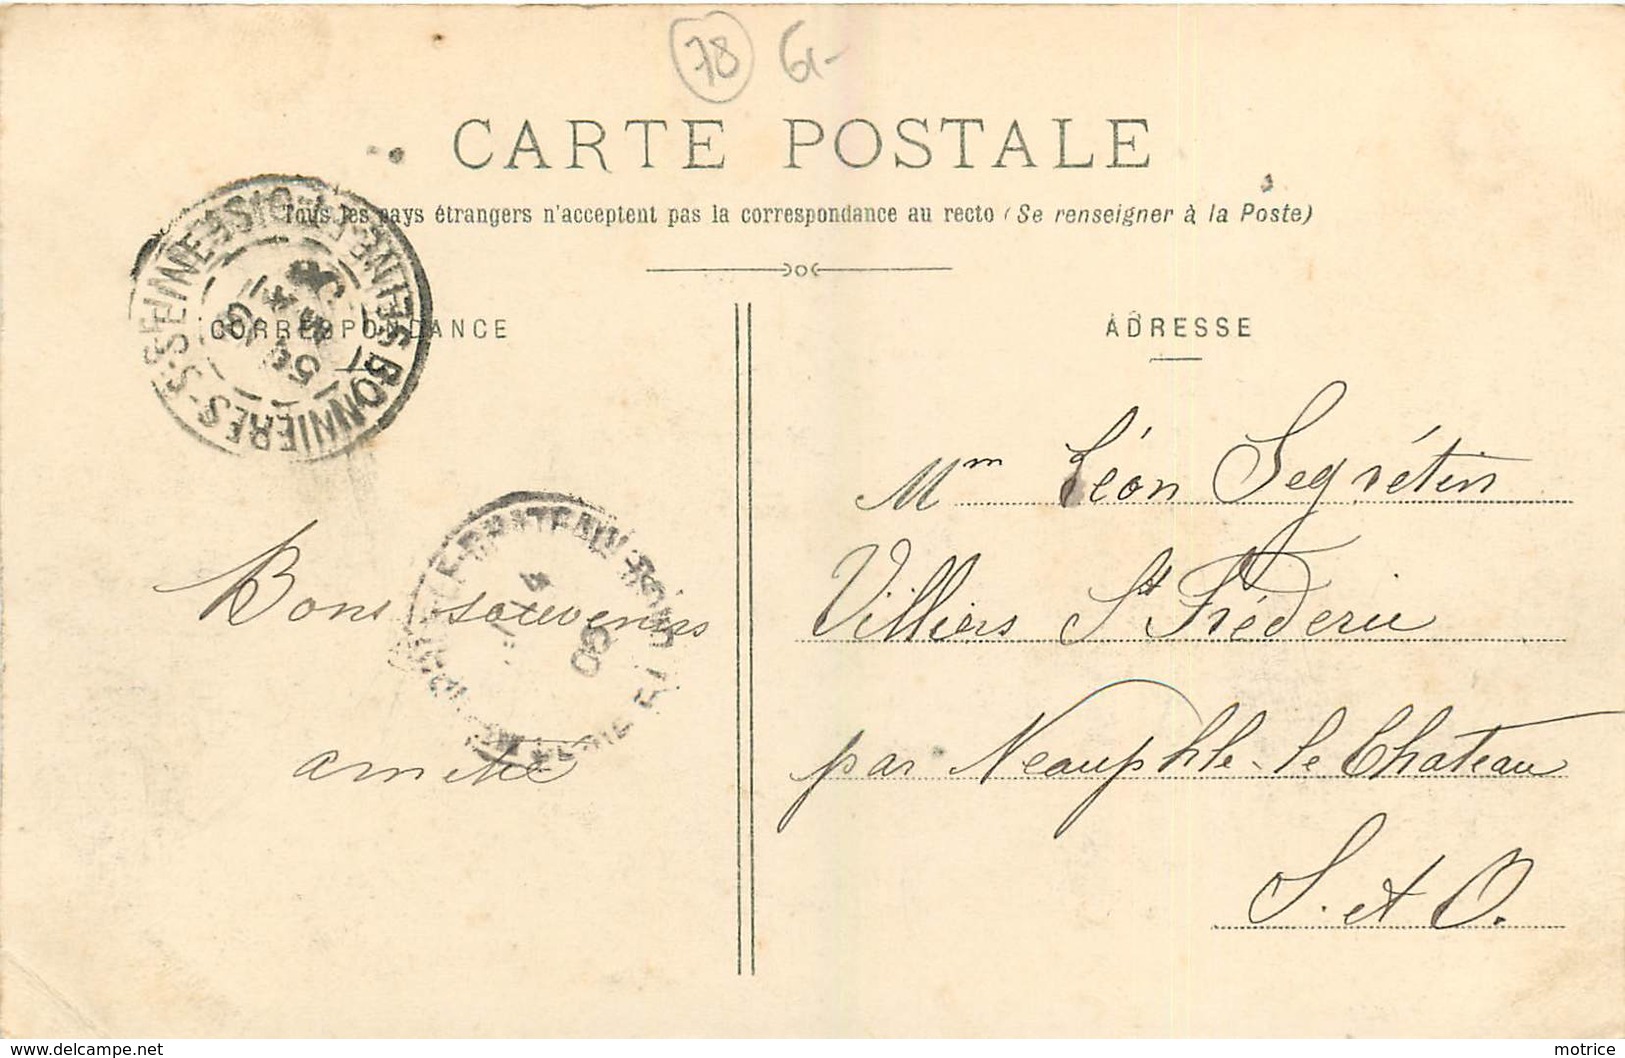 78 6-
CARTE POSTALE
Tous les pays étrangers n'acceptent pas la correspondance au recto (Se renseigner à la Poste)
CORRESPONDANCE
ADRESSE
BONNIERES-S-SEINE
SEINE-ET-OISE
Mm Léon Segrétin
Villiers St Fréderic
par Neauphle-le-Château
S. et O.
Bons souvenirs
www.delcampe.net
motrice